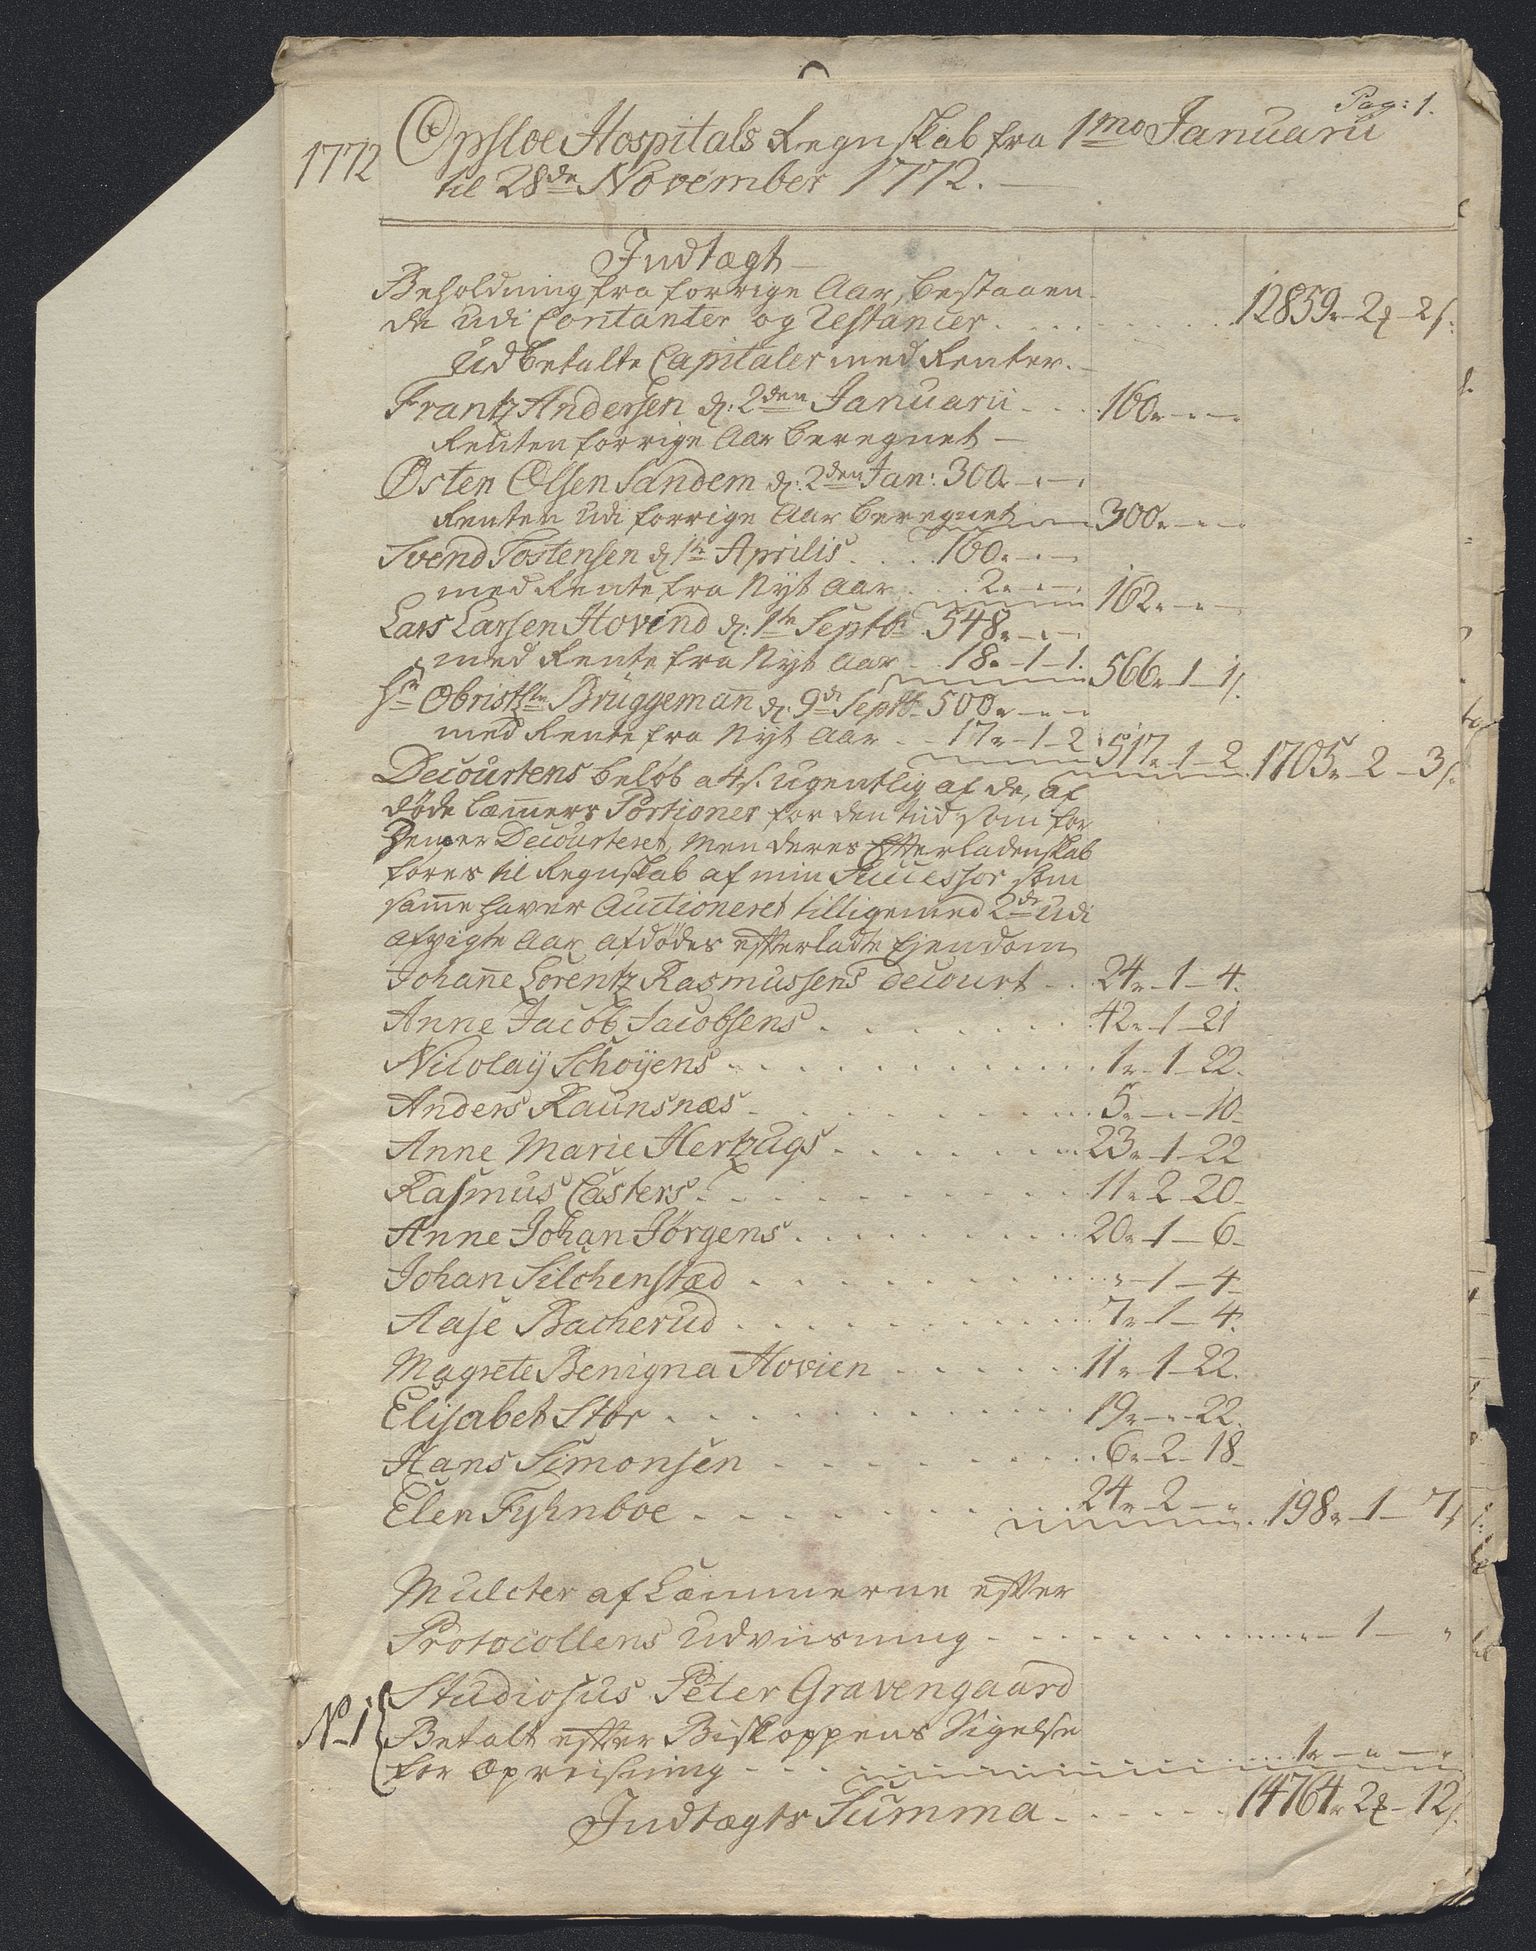 Pag: 1.
1772 Opsloe Hospitals Regnskab fra 1mo Januarii
til 28de November 1772.
Indtægt
Beholdning fra forrige Aar, bestaaen-
de udi Contanter og Restancer . . . 12859 - 2 - 2 s:
Udbetalte Capitaler med Renter.
Frantz Andersen d: 2den Januarii - - 160 - " - "
Renten forrige Aar beregnet -
Østen Olsen Sandem d: 2den Jan: 300 - " - "
Renten udi forrige Aar beregnet 300 - " - "
Svend Tostensen d. 1te Aprilis . . 160 - " - "
med Rente fra Nyt Aar . . 2 - " - " 162 - " - "
Lars Larsen Hovind d: 1te Septbr 548 - " - "
med Rente fra Nyt Aar - 18 - 1 - 1. 566 - 1 - 1 s.
Hr Obristltn Brüggemañ d. 9de Septbr 500 - " - "
med Rente fra Nyt Aar - - 17 - 1 - 2 517 - 1 - 2 1705 - 2 - 3 s.
Decourtens beløb a 4 s. ugentlig af de, af
døde Lem̅ers Portioner for den tiid som for
Dem er Decourteret, men deres Efterladenskab
føres til Regnskab af min Successor som
sam̅e haver Auctioneret tilligemed 2de udi
afvigte Aar afdødes efterladte Ejendom
Johan̅e Lorentz Rasmussens decourt - . 24 - 1 - 4.
Anne Jacob Jacobsens . . . 42 - 1 - 21
Nicolaÿ Schoÿens . . . 1 - 1 - 22.
Anders Raunsnæs . . . 5 - " - 10
Anne Marie Hertzugs . . . 23 - 1 - 22
Rasmus Casters . . . 11 - 2 - 20
Anne Johan Jörgens . . . 20 - 1 - 6
Johan Silchenstæd . . . " - 1 - 4
Aase Bacherud . . . 7 - 1 - 4.
Magrete Benigna Hovien . . . 11 - 1 - 22.
Elisabet Stor . . . 19 - " - 22.
Hans Simonsen . . . 6 - 2 - 18
Elen Fyhnboe . . . 24 - 2 - " 198 - 1 - 7 s
Mulcter af Lemmerne efter
Protocollens udviisning . . . " - 1 - "
Studiosus Peter Gravengaard
No 1 Betalt efter Biskoppens Sigelse
for Opreisning . . . 1 - " - "
Indtægts Summa . . . 14764 - 2 - 12 s.